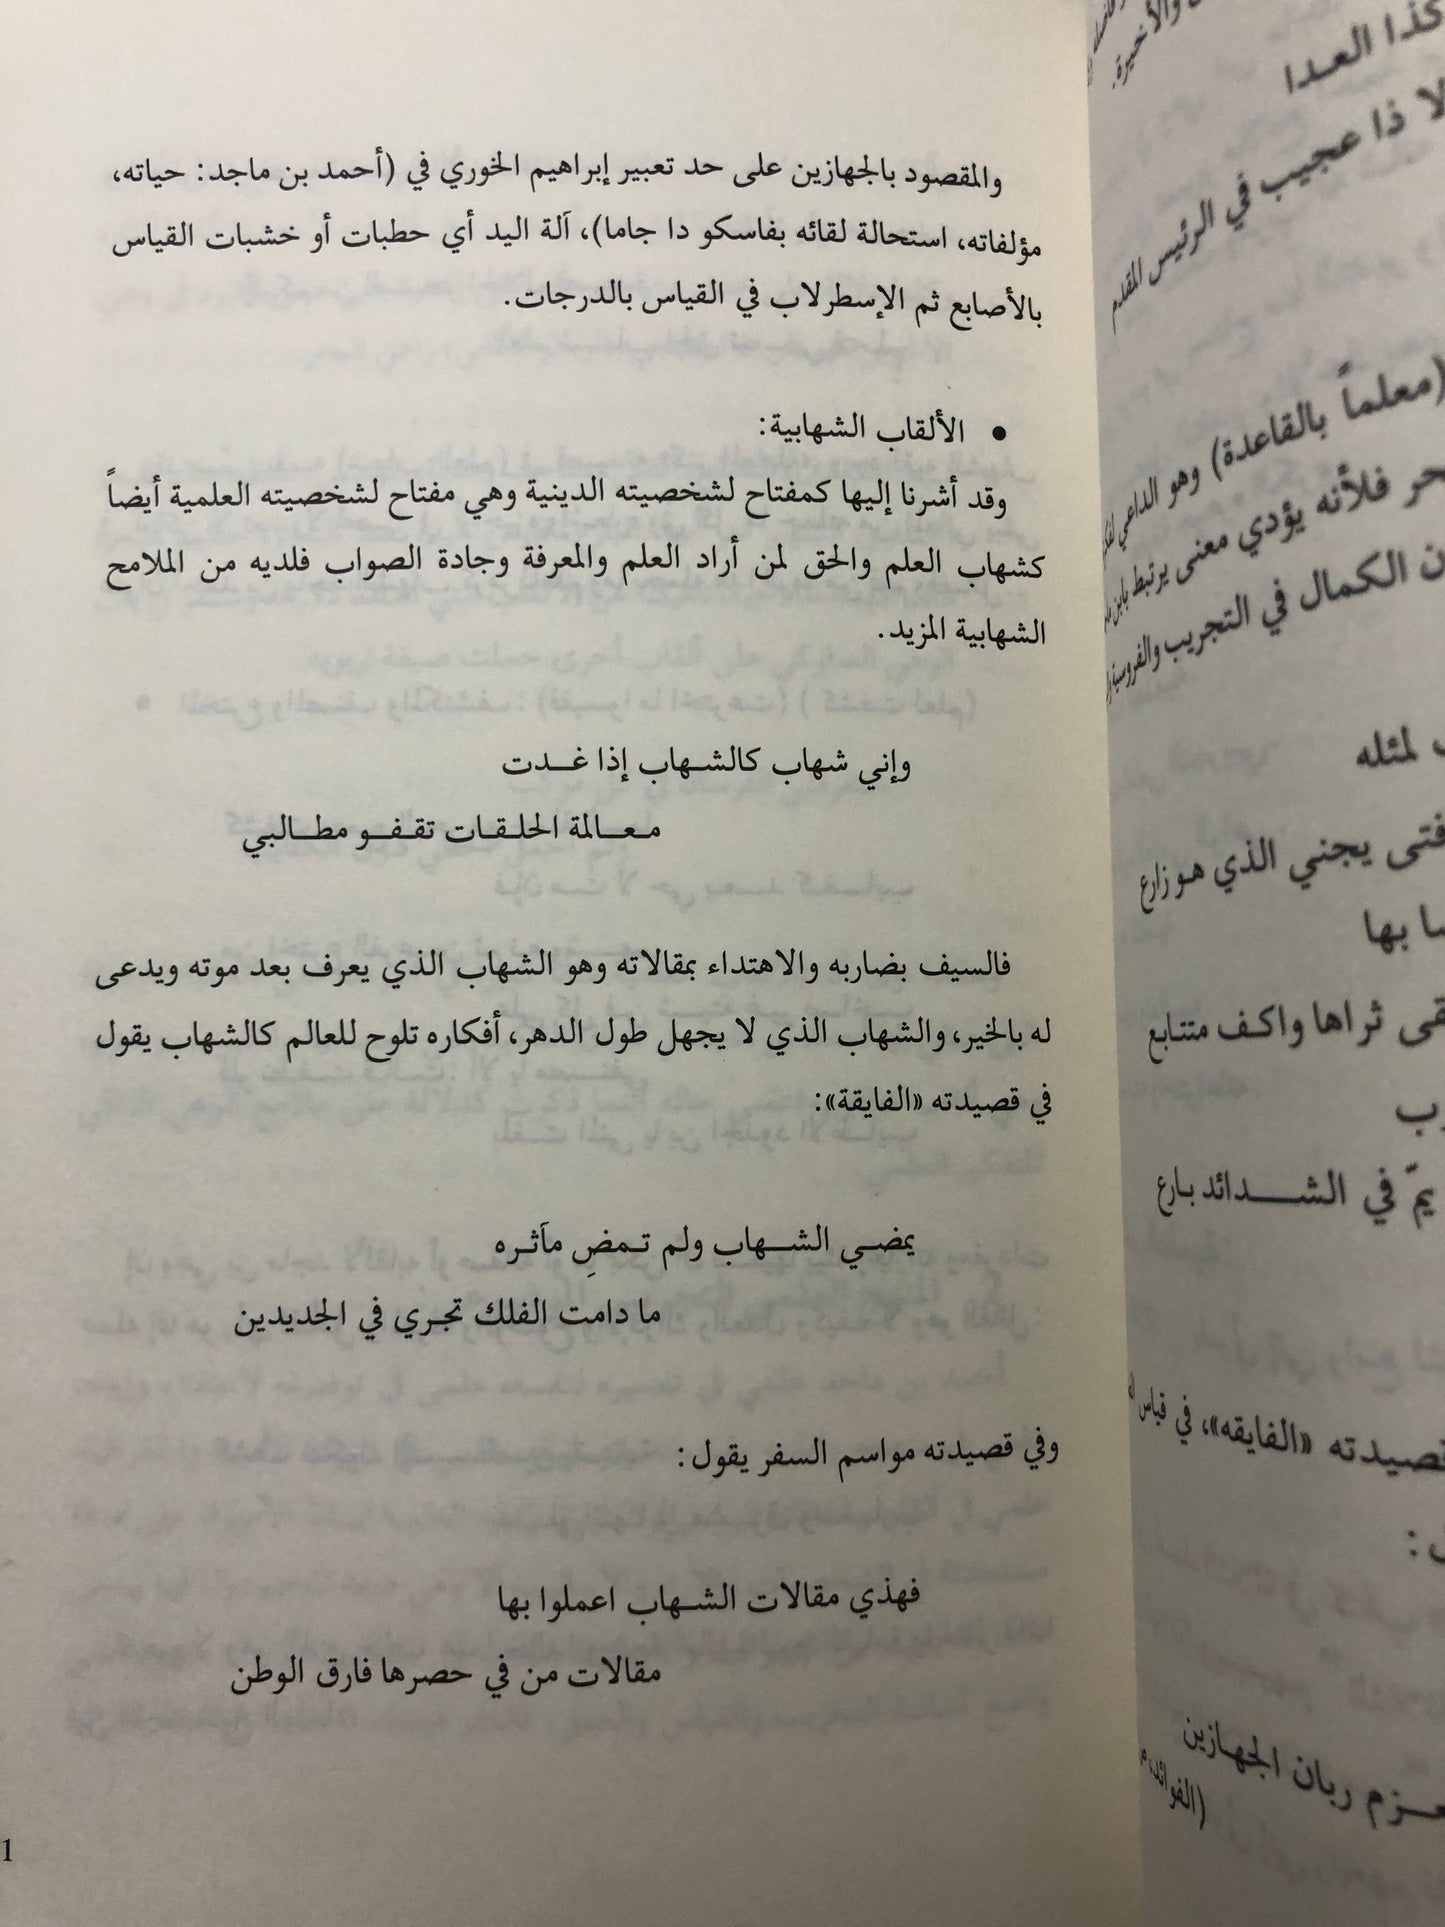 والمقصود بالجهازين على حد تعبير إبراهيم الخوري في (أحمد بن ماجد: حياته،
مؤلفاته، استحالة لقائه بفاسكو دا جاما)، آلة اليد أي حطبات أو خشبات القياس
بالأصابع ثم الإسطرلاب في القياس بالدرجات.
• الألقاب الشهابية:
وقد أشرنا إليها كمفتاح لشخصيته الدينية وهي مفتاح لشخصيته العلمية أيضاً
كشهاب العلم والحق لمن أراد العلم والمعرفة وجادة الصواب فلديه من الملامح
الشهابية المزيد.
وإني شهاب كالشهاب إذا غدت
معالمة الحلقات تقفو مطالبي
فالسيف بضاربه والاهتداء بمقالاته وهو الشهاب الذي يعرف بعد موته ويدعى
له بالخير، والشهاب الذي لا يجهل طول الدهر، أفكاره تلوح للعالم كالشهاب يقول
في قصيدته «الفايقة»:
يمضي الشهاب ولم تمضِ مآثره
ما دامت الفلك تجري في الجديدين
وفي قصيدته مواسم السفر يقول:
فهذي مقالات الشهاب اعملوا بها
مقالات من في حصرها فارق الوطن
1
والأخيرة.
كذا العدا
لا ذا عجيب في الرئيس المقدم
(معلماً بالقاعدة) وهو الداعي
حر فلأنه يؤدي معنى يرتبط
ن الكمال في التجريب والفروسية
لمثله
فتى يجني الذي هو زارع
بها
ثراها واكف متتابع
يمّ في الشدائد بارع
قصيدته «الفايقه»، في قياس
:
ربان الجهازين
(الفوائد،